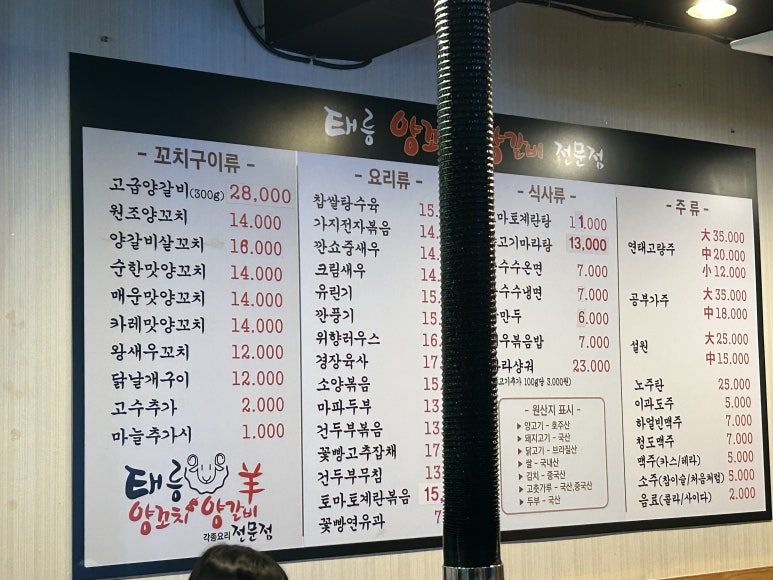 태릉 양꼬 양갈비 전문점
- 꼬치구이류 -
고급양갈비(300g) 28,000
원조양꼬치 14.000
양갈비살꼬치 16.000
순한맛양꼬치 14.000
매운맛양꼬치 14.000
카레맛양꼬치 14.000
왕새우꼬치 12.000
닭날개구이 12.000
고수추가 2.000
마늘추가시 1.000
태릉 羊
양꼬치 양갈비
각종요리 전문점
- 요리류 -
찹쌀탕수육 15.
가지전자볶음 14.
깐쇼중새우 14.
크림새우 14.
유린기 15.
깐풍기 15.
위향러우스 16.
경장육사 17
소양볶음 15.
마파두부 13.
건두부볶음 13.
꽃빵고추잡채 17
건두부무침 13.
토마토계란볶음 15,
꽃빵연유과 7
- 식사류 -
마토계란탕 11.000
고기마라탕 13,000
수수온면 7.000
수수냉면 7.000
만두 6.000
우볶음밥 7.000
라샹궈 23.000
고기추가 100g당 3,000원)
- 원산지 표시 -
▶ 양고기 - 호주산
▶ 돼지고기 - 국산
▶ 닭고기 - 브라질산
▶ 쌀 - 국내산
▶ 김치 - 중국산
▶ 고춧가루 - 국산,중국산
▶ 두부 - 국산
- 주 류 -
연태고량주 大 35.000
中 20.000
小 12.000
공부가주 大 35.000
中 18.000
설원 大 25.000
中 15.000
노주탄 25.000
이과도주 5.000
하얼빈맥주 7.000
청도맥주 7.000
맥주(카스/테라) 5.000
소주(참이슬/처음처럼) 5.000
음료(콜라/사이다) 2.000